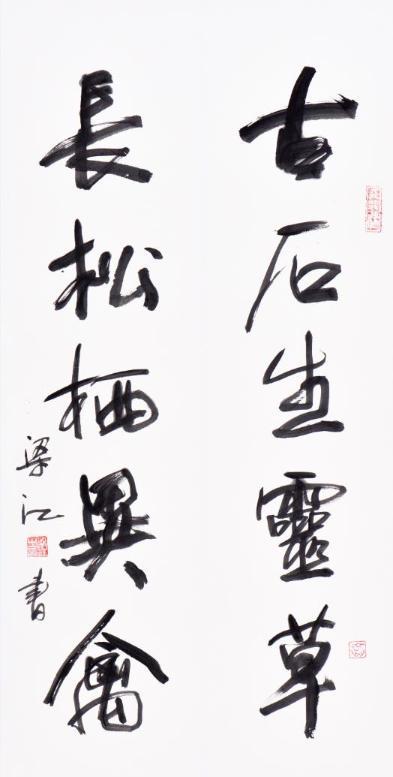 古石生靈草
長松栖異禽
梁江書